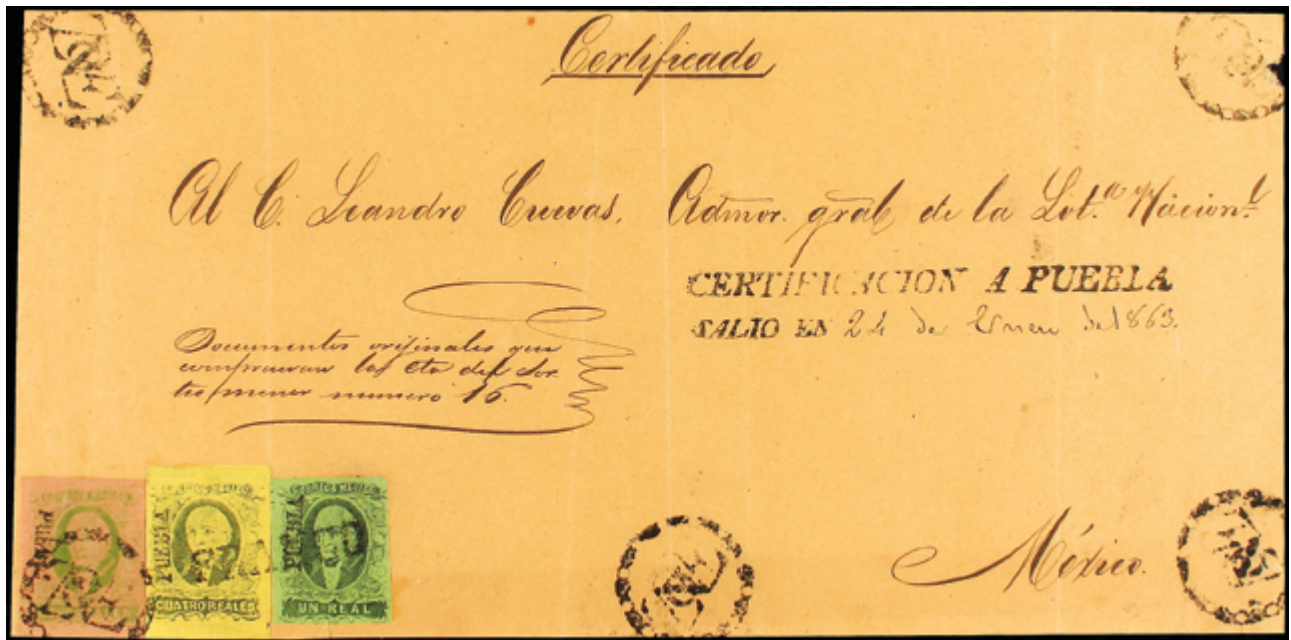 Certificado
Al C. Leandro Cuevas. Admor. gral de la Lot.a Nacion.l
CERTIFICACION A PUEBLA
SALIO EN 24 de Enero de 1863.
Documentos originales que
comprueban la cta del Sor-
teo menor numero 16.
México.
PUEBLA
CORREOS MEJICO
PUEBLA
CUATRO REALES
CORREOS MEJICO
PUEBLA
UN REAL